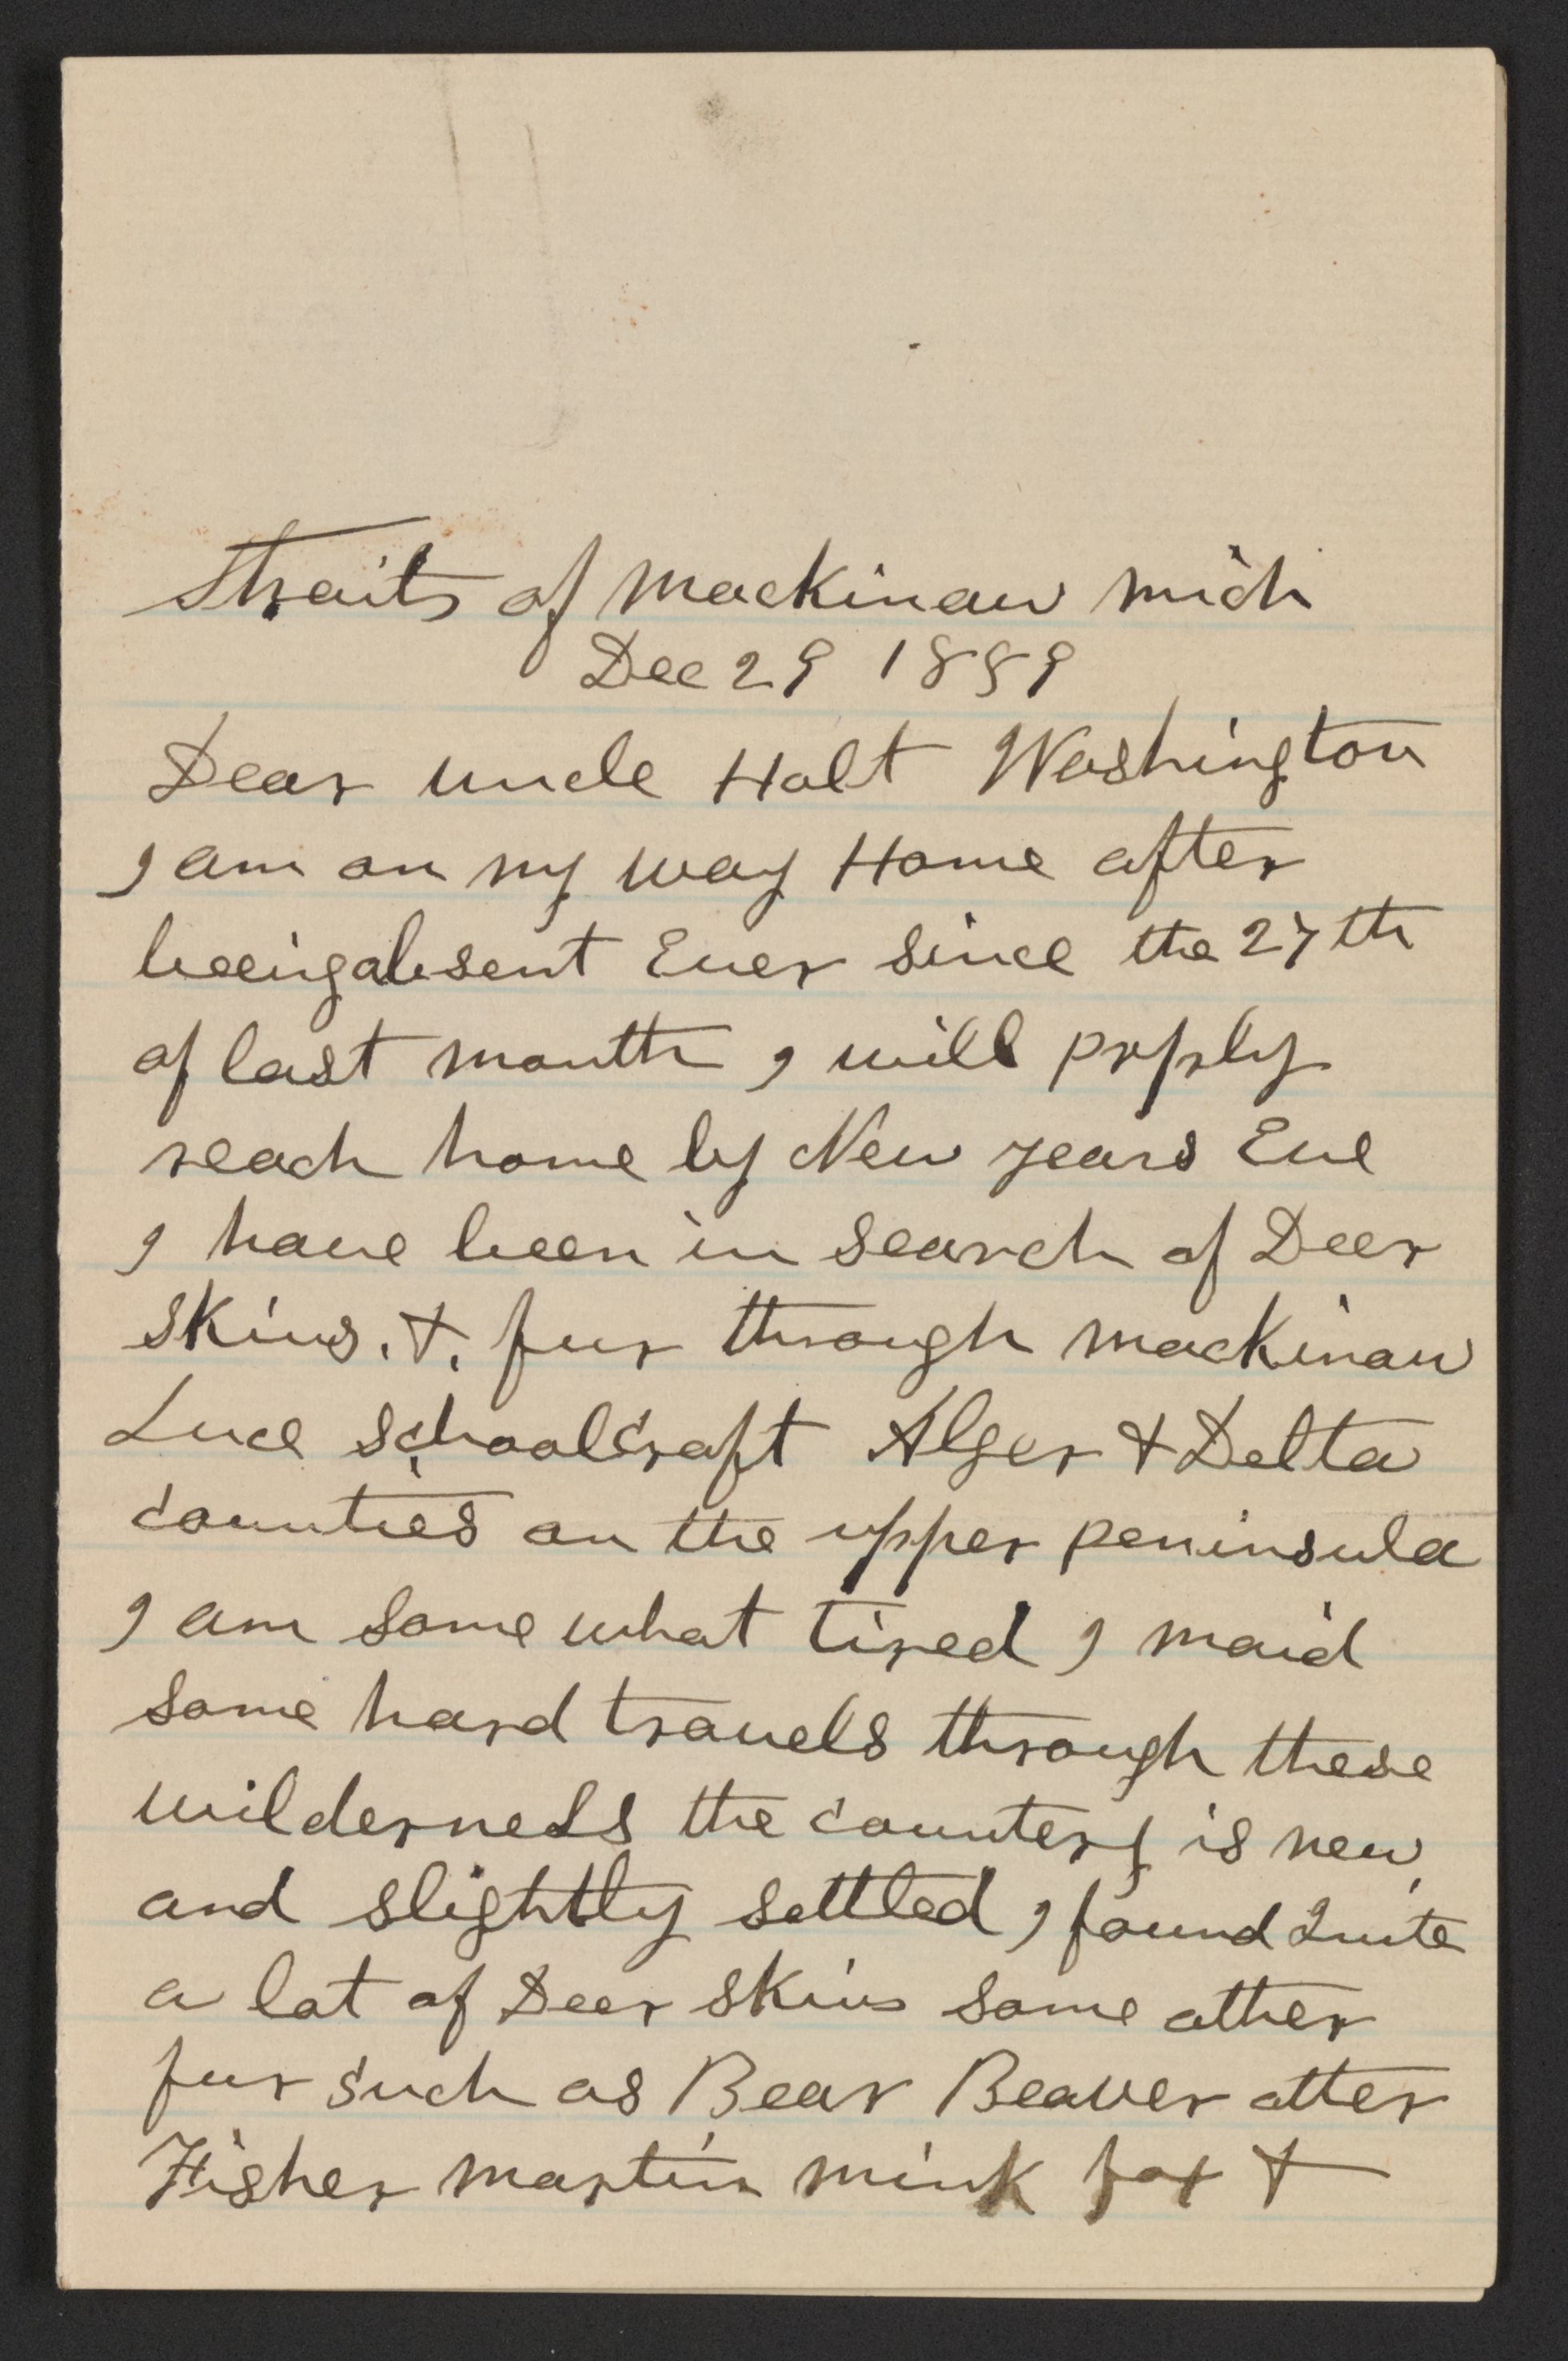 Straits of Mackinaw Mich
Dec 29 1889
Dear uncle Holt Washington
I am on my way Home after
beeingabsent Ever since the 27th
of last month I will prpply
reach home by New years Eve
I have been in search of Deer
skins. &. fur through Mackinaw
Luce Schoolcraft Alger & Delta
counties on the upper peninsula
I am some what tired I maid
some hard travels through these
wilderness the countery is new
and slightly settled, I found Quite
a lot of Deer skins some other
fur such as Bear Beaver otter
Fisher martin mink fox &